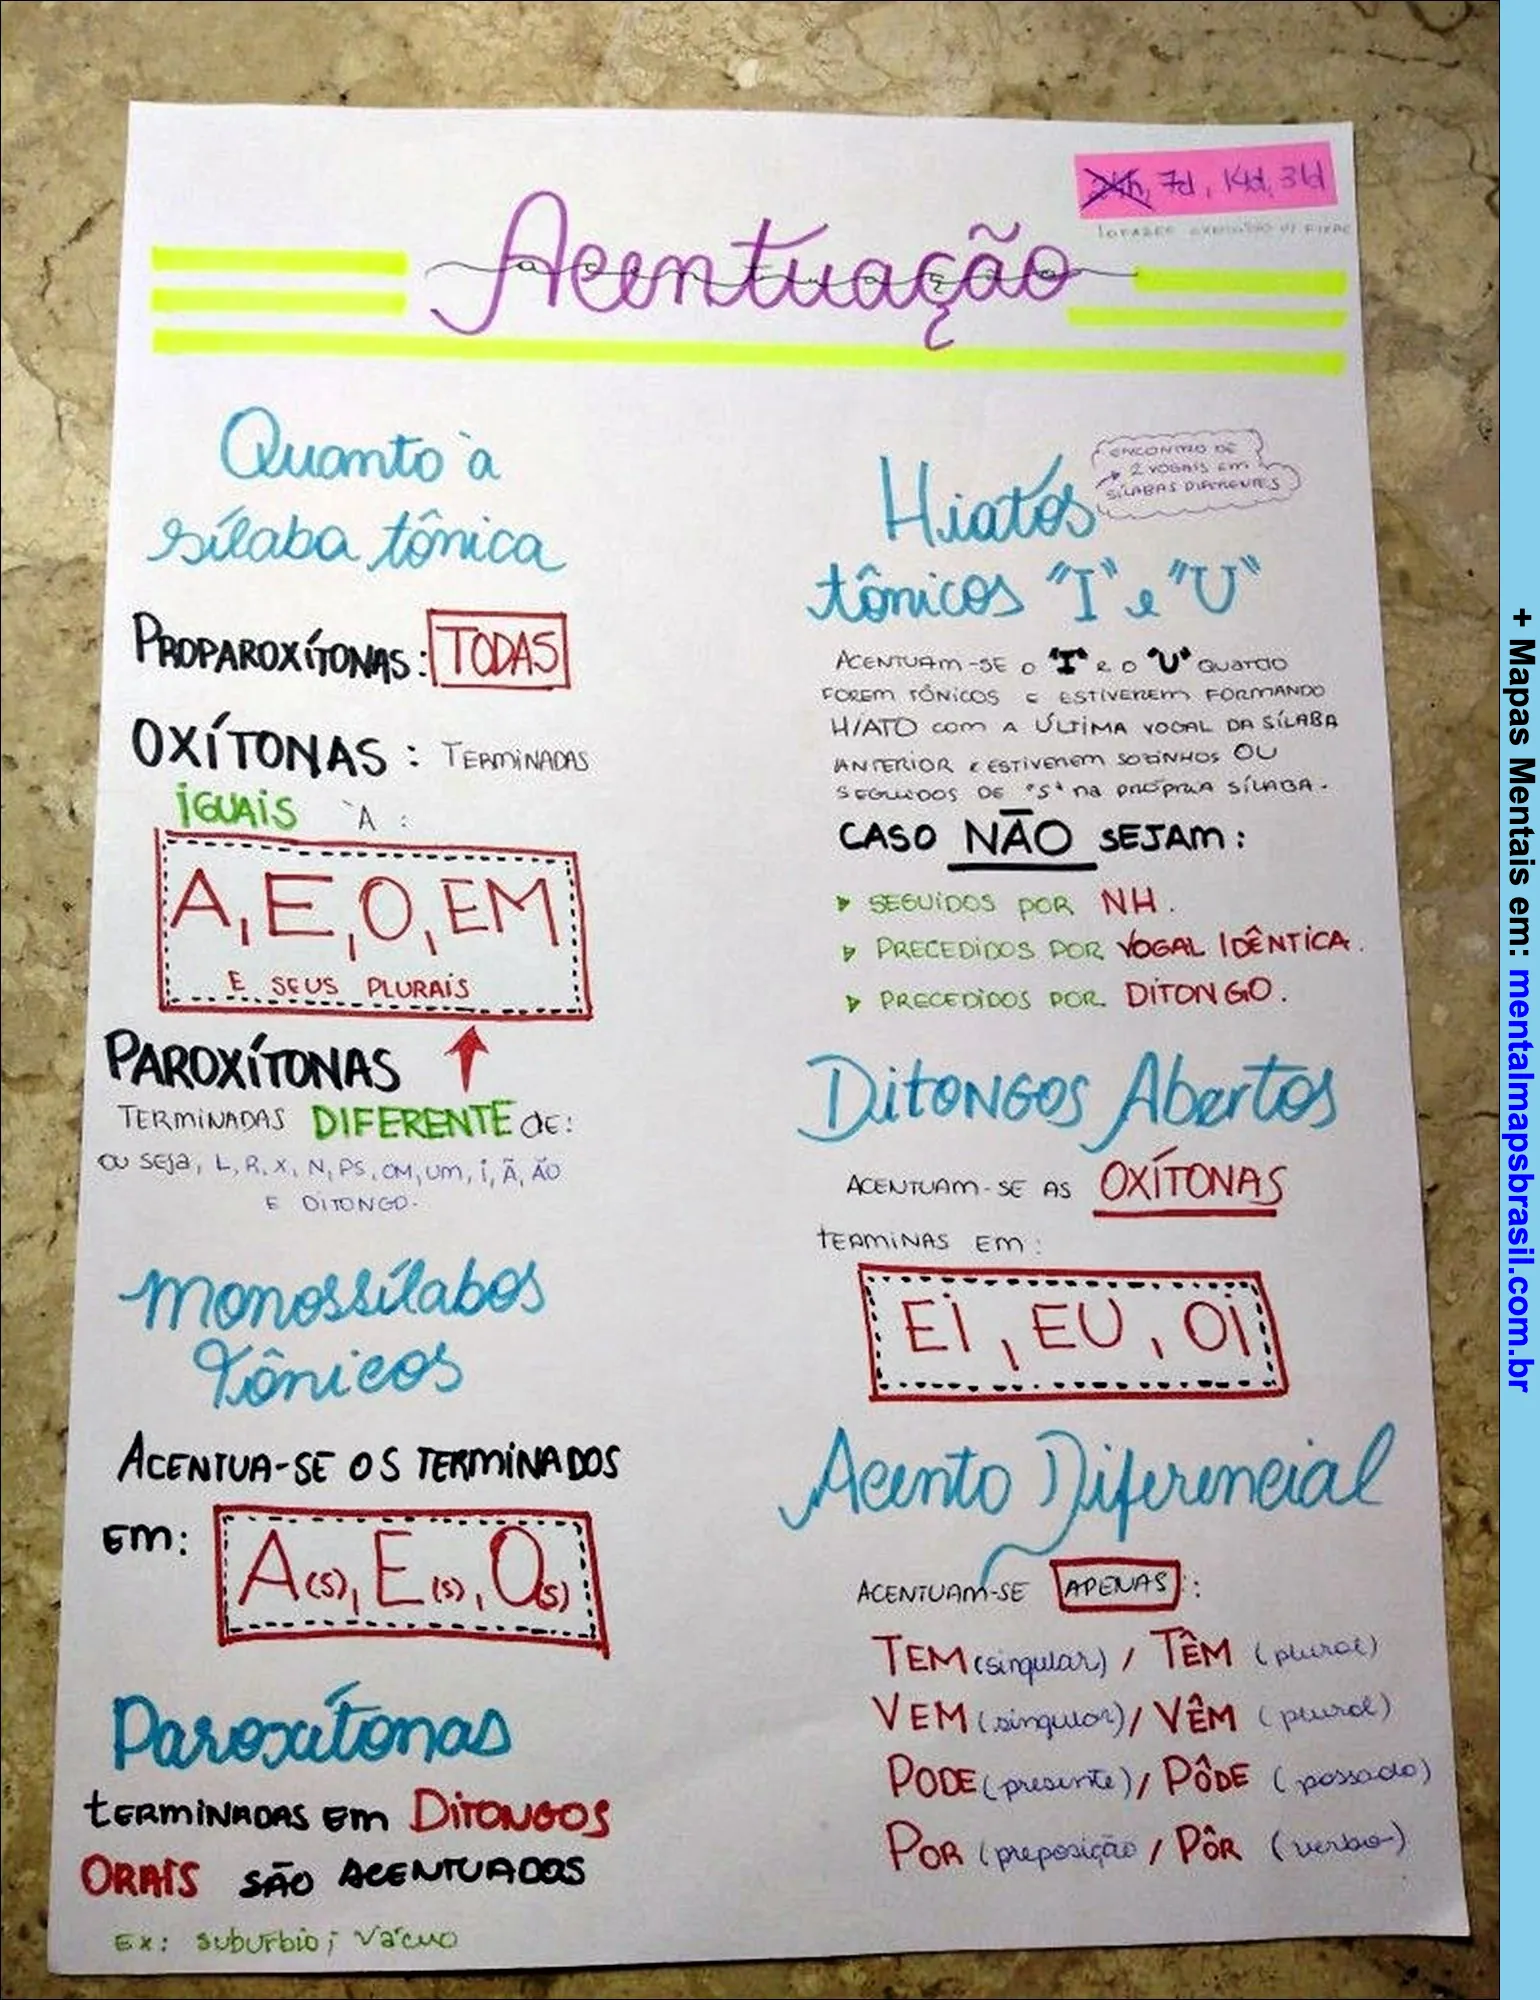 24h, 7d, 14d, 31d
Acentuação
Quanto à
sílaba tônica
PROPAROXÍTONAS: TODAS
OXÍTONAS: TERMINADAS
IGUAIS À:
A, E, O, EM
E SEUS PLURAIS
PAROXÍTONAS
TERMINADAS DIFERENTE DE:
OU SEJA, L, R, X, N, PS, OM, UM, I, Ã, ÃO
E DITONGO.
Monossílabos
Tônicos
ACENTUA-SE OS TERMINADOS
EM: A(S), E(S), O(S)
Paroxítonas
TERMINADAS EM DITONGOS
ORAIS SÃO ACENTUADAS
EX: SUBÚRBIO; VÁCUO
ENCONTRO DE
2 VOGAIS EM
SÍLABAS DIFERENTES
Hiatos
tônicos "I" e "U"
ACENTUAM-SE O "I" E O "U" QUANDO
FOREM TÔNICOS E ESTIVEREM FORMANDO
HIATO COM A ÚLTIMA VOGAL DA SÍLABA
ANTERIOR E ESTIVEREM SOZINHOS OU
SEGUIDOS DE "S" NA PRÓPRIA SÍLABA.
CASO NÃO SEJAM:
SEGUIDOS POR NH.
PRECEDIDOS POR VOGAL IDÊNTICA.
PRECEDIDOS POR DITONGO.
DITONGOS Abertos
ACENTUAM-SE AS OXÍTONAS
TERMINAS EM:
EI, EU, OI
Acento Diferencial
ACENTUAM-SE APENAS:
TEM (singular) / TÊM (plural)
VEM (singular) / VÊM (plural)
PODE (presente) / PÔDE (passado)
POR (preposição / PÔR (verbo)
+ Mapas Mentais em: mentalmapsbrasil.com.br